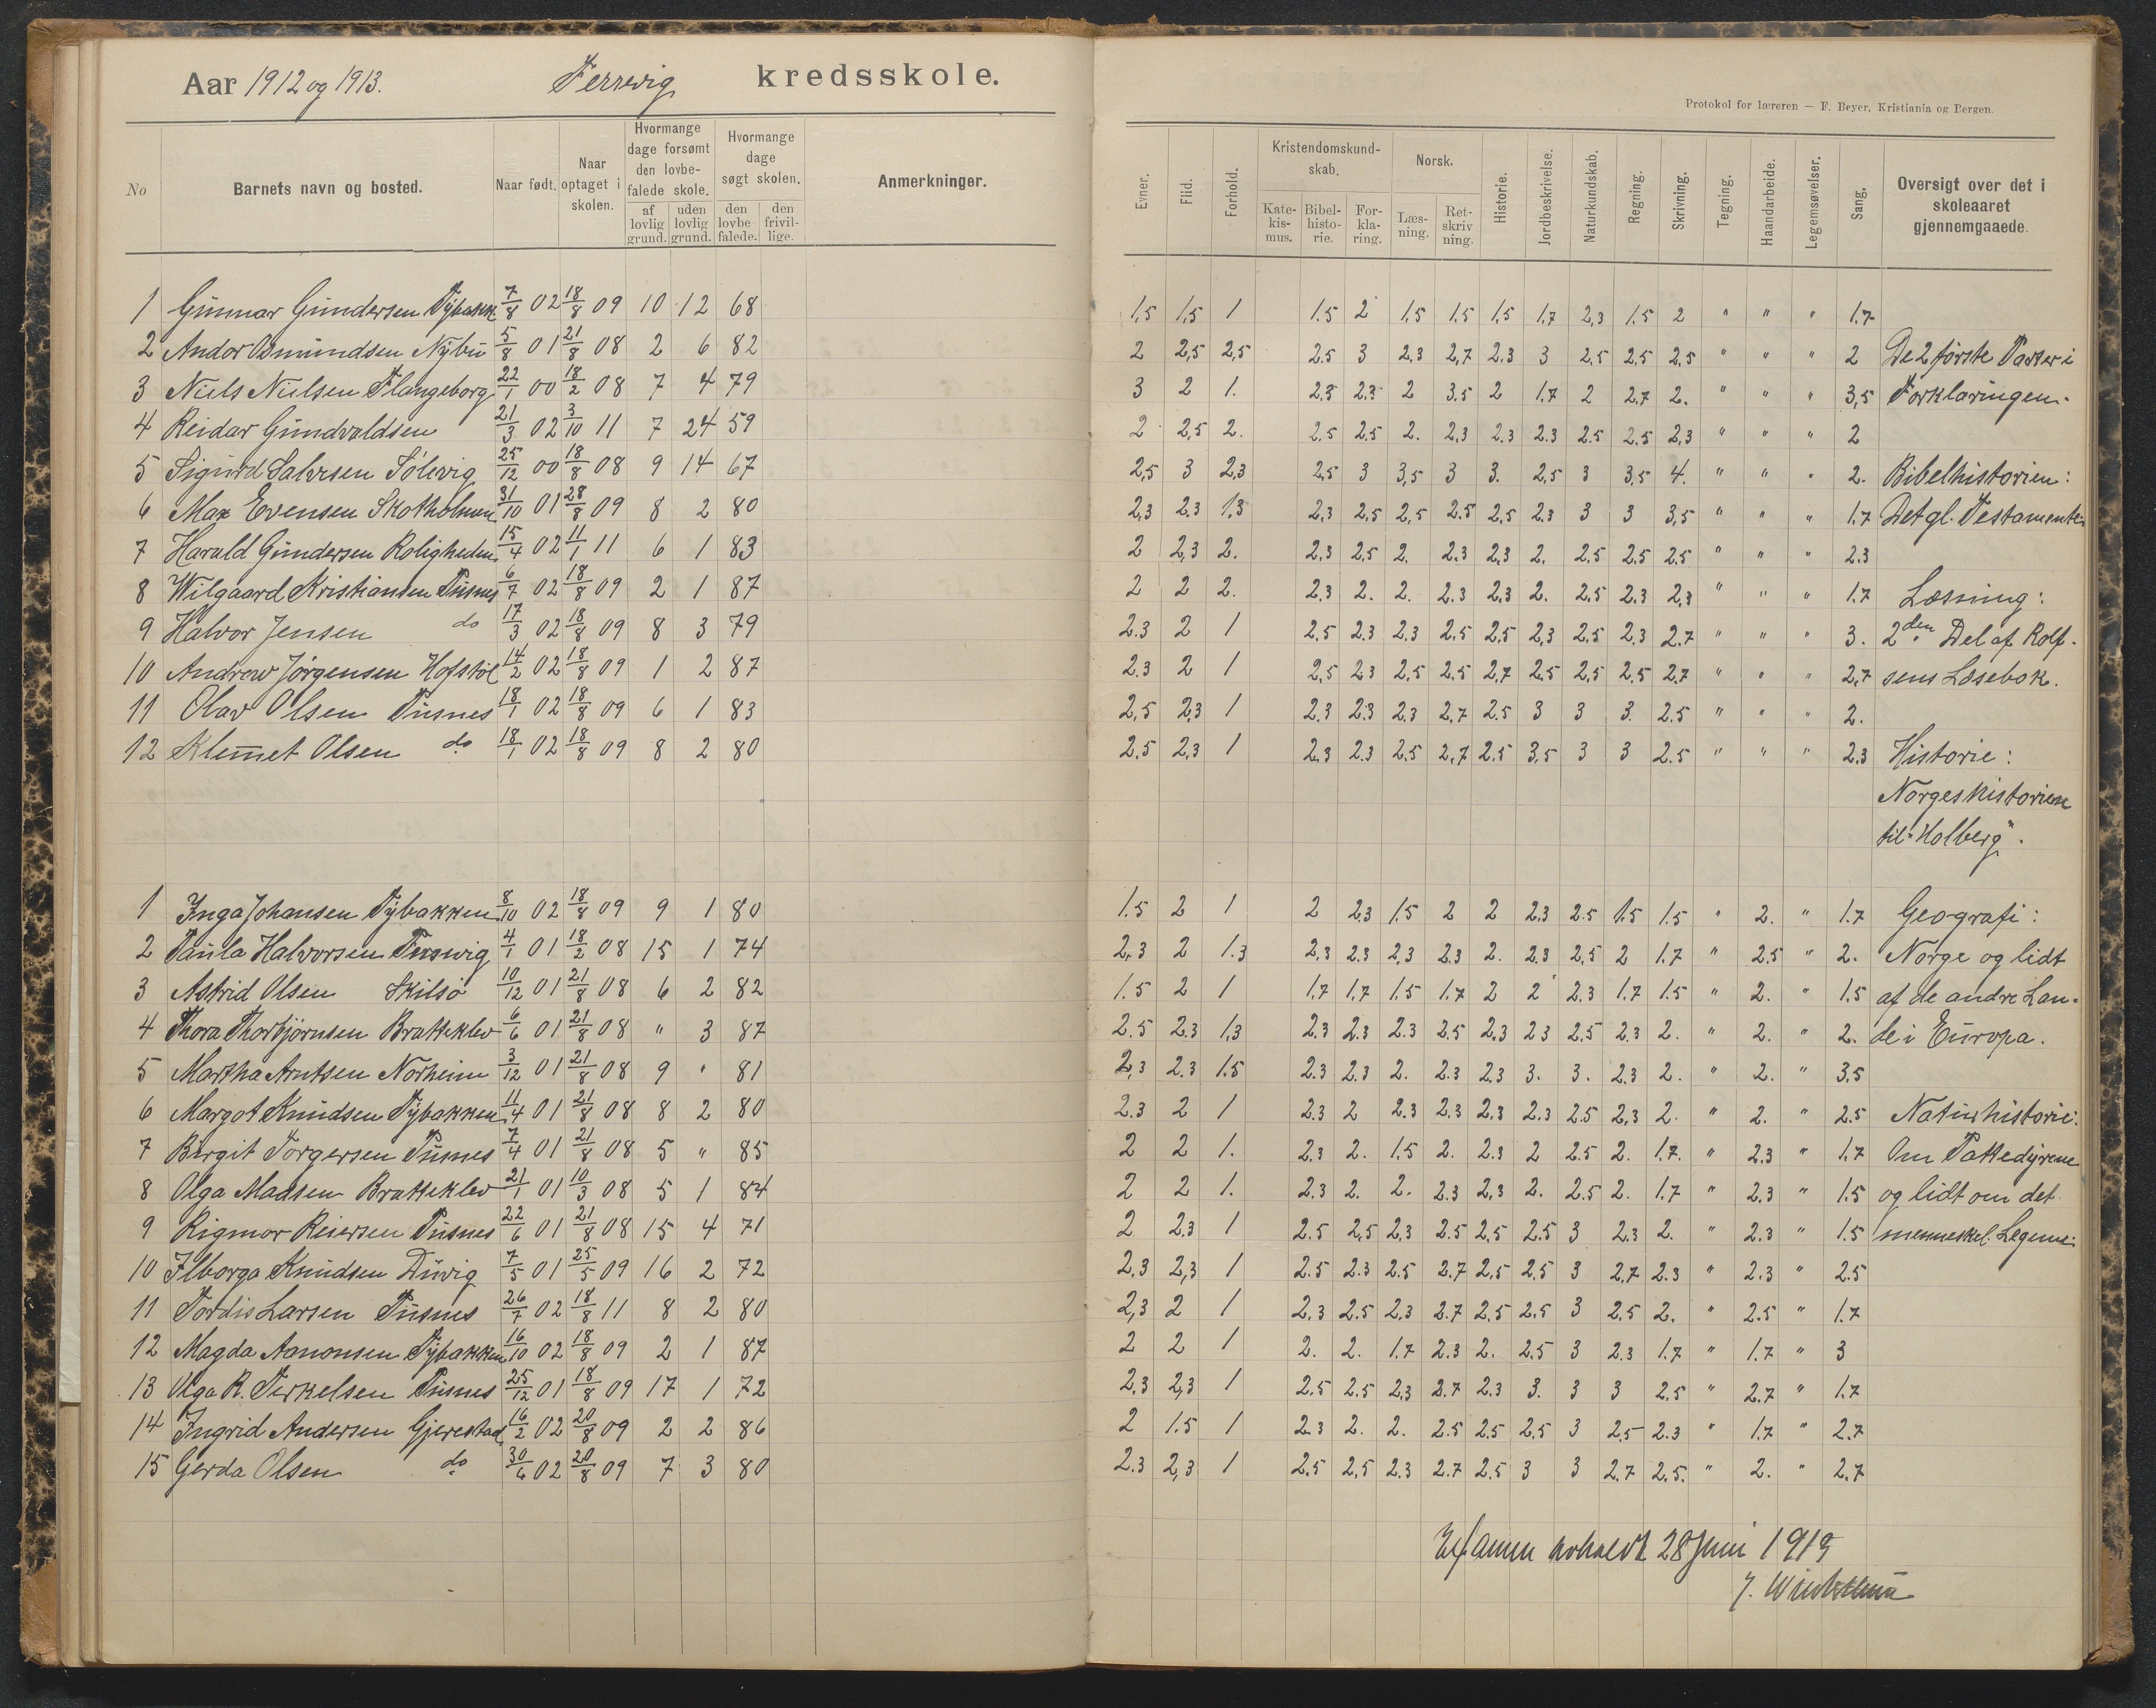 Aar 1912 og 1913. Terswig kredsskole.
No
Barnets navn og bosted.
Naar født.
Naar optaget i skolen.
Hvormange dage forsømt den lovbefalede skole.
af lovlig grund.
uden lovlig grund.
Hvormange dage søgt skolen.
den lovbefalede.
den frivillige.
Anmerkninger.
1 Gunnar Gundersen Tybakk. 7/8 02 18/8 09 10 12 68
2 Andor Osmundsen Nybu 5/8 01 21/8 08 2 6 82
3 Niels Nielsen Flangeborg 22/1 00 18/2 08 7 4 79
4 Reidar Gundvaldsen 21/3 02 3/10 11 7 24 59
5 Sigurd Salvesen Sølevig 25/12 00 18/8 08 9 14 67
6 Max Evensen Skotholmen 31/10 01 28/8 09 8 2 80
7 Harald Gundersen Roligheden 15/4 02 11/1 11 6 1 83
8 Wilgaard Kristiansen Pusnes 6/7 02 18/8 09 2 1 87
9 Halvor Jensen do 17/3 02 18/8 09 8 3 79
10 Andrew Jørgensen Hofstøl 14/2 02 18/8 09 1 2 87
11 Olav Olsen Pusnes 18/1 02 18/8 09 6 1 83
12 Klemet Olsen do 18/1 02 18/8 09 8 2 80
1 Inga Johansen Tybakken 8/10 02 18/8 09 9 1 80
2 Paula Halvorsen Terswig 4/1 01 18/2 08 15 1 74
3 Astrid Olsen Skilsø 10/12 01 21/8 08 6 2 82
4 Thora Thorbjørnsen Bratteklev 6/6 01 21/8 08 " 3 87
5 Martha Arntsen Norheim 3/12 01 21/8 08 9 " 81
6 Margot Knudsen Tybakken 11/4 01 21/8 08 8 2 80
7 Birgit Torgersen Pusnes 7/4 01 21/8 08 5 " 85
8 Olga Madsen Bratteklev 21/1 01 10/3 08 5 1 84
9 Rigmor Reiersen Pusnes 22/6 01 21/8 08 15 4 71
10 Ilborga Knudsen Duvig 7/5 01 25/5 09 16 2 72
11 Tordis Larsen Pusnes 26/7 02 18/8 11 8 2 80
12 Magda Aanonsen Tybakken 16/10 02 18/8 09 2 1 87
13 Olga R. Terkelsen Pusnes 25/12 01 18/8 09 17 1 72
14 Ingrid Andersen Gjerestad 16/2 02 20/8 09 2 2 86
15 Gerda Olsen do 30/6 02 20/8 09 7 3 80
Protokol for læreren — F. Beyer, Kristiania og Bergen.
Evner.
Flid.
Forhold.
Kristendomskundskab.
Katekismus.
Bibelhistorie.
Forklaring.
Norsk.
Læsning.
Retskrivning.
Historie.
Jordbeskrivelse.
Naturkundskab.
Regning.
Skrivning.
Tegning.
Haandarbeide.
Legemsøvelser.
Sang.
Oversigt over det i skoleaaret gjennemgaaede.
1,5 1,5 1 1.5 2 1,5 1.5 1,5 1,7 2,3 1.5 2 " " " 1.7
2 2,5 2,5 2.5 3 2.3 2,7 2.3 3 2,5 2,5 2,5 " " " 2 De 2 første Parter i
3 2 1. 2,3 2.3 2 3.5 2 1,7 2 2.7 2. " " " 3,5 Forklaringen.
2 2,5 2. 2.5 2.5 2. 2,3 2.3 2.3 2.5 2.5 2,3 " " " 2
2,5 3 2,3 2,5 3 3,5 3 3. 2,5 3 3,5 4. " " " 2. Bibelhistorien:
2,3 2.3 1,3 2,3 2,5 2,5 2.5 2,5 2,3 3 3 3,5 " " " 1.7 Det gl. Testamente.
2 2,3 2. 2,3 2,5 2. 2.3 2,3 2. 2.5 2.5 2.5 " " " 2.3
2 2 2. 2,3 2. 2. 2.3 2,3 2. 2.5 2.3 2,3 " " " 1.7 Læsning:
2.3 2 1 2,5 2.3 2,3 2.5 2,5 2,3 2,5 2,3 2.7 " " " 3. 2den Del af Rolf-
2.3 2 1 2,5 2.3 2,5 2.5 2,7 2,5 2,5 2.5 2.7 " " " 2,7 sens Læsebok.
2,5 2,3 1 2.3 2.3 2.3 2,7 2.5 3 3 3. 2.5 " " " 2.
2.5 2,3 1 2.3 2.3 2.5 2,7 2.5 3.5 3 3 2.5 " " " 2.3 Historie:
Norgeshistorien
til "Holberg".
1.5 2 1 2 2,3 1.5 2 2 2.3 2.5 1.5 1.5 " 2. " 1.7 Geografi:
2,3 2 1.3 2,3 2.3 2,3 2.3 2. 2.3 2,5 2 1.7 " 2.5 " 2. Norge og lidt
1.5 2 1 1,7 1,7 1.5 1.7 2 2 2.3 1.7 1.5 " 2. " 1,5 af de andre Lan-
2.5 2.3 1,3 2.3 2.3 2.3 2.5 2,3 2.3 2.5 2.3 2. " 2. " 2. de i Europa.
2,3 2.3 1.5 2.3 2.3 2. 2.3 2.3 3. 3. 2.3 2. " 2. " 3,5
2.3 2 1 2.3 2 2.3 2.3 2.3 2.3 2.5 2,3 2. " 2. " 2.5 Naturhistorie:
2 2 1. 2.3 2. 1.5 2. 2.3 2 2.5 2. 1.7. " 2.3 " 1.7 Om Pattedyrene
2 2 1. 2.3 2. 2. 2.3 2,3 2. 2.5 2. 1.7 " 2,3 " 1.5 og lidt om det
2 2,3 1 2.5 2,5 2,3 2.5 2,5 2.5 3 2.3 2. " 2.3 " 1.5 menneskel. Legeme.
2,3 2,3 1 2.5 2.3 2.5 2.7 2,5 2,5 3 2,7 2.3 " 2.3 " 2.5
2,3 2 1 2,3 2.5 2,3 2.7 2,5 2,5 3 2.5 2. " 2.5 " 1.7
2 2 1 2. 2. 1.7 2.3 2. 2.5 3 2.3 1.7 " 1.7 " 3
2.3 2,3 1 2.5 2.5 2,3 2.7 2.3 3. 3 3 2.5 " 2.7 " 1.7
2 1.5 1 2.3 2. 2. 2.5 2.5 2,5 3 2,5 2.3 " 1.7 " 2.7
2.3 2,3 1 2,5 2,5 2.3 2.7 2.5 3 3 2.7 2.5. " 2. " 2.7
Examen avholdt 28 Juni 1913